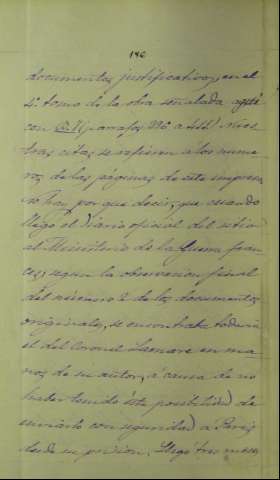 146
documentos justificativos, en el
4º tomo de la obra señalada aquí
con (parrafos 396 a 411) Nues
tras citas se refieren a los nume
ros de las páginas de este impreso
no hay por que decir, que cuando
llegó el Diario oficial del sitio
al Ministerio de la Guerra fran
ces, segun la observacion final
del número 2 de los documentos
originales, se encontraba todavia
el del Coronel Lamare en ma
nos de su autor, á causa de no
haber tenido éste posibilidad de
enviarlo con seguridad á Paris
desde su prision. Llegó tres meses